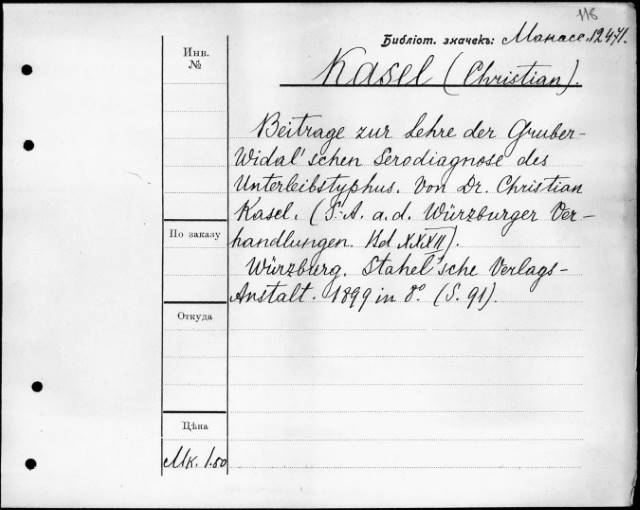 118
Библіот. значекъ: Манасе. 12471.
Kasel (Christian).
Инв.
№
Beitrage zur Lehre der Gruber-
Widal'schen Serodiagnose des
Unterleibstyphus. Von Dr. Christian
Kasel. (S.-A. a. d. Würzburger Ver-
handlungen. Bd XXXII).
Würzburg. Stahel'sche Verlags-
Anstalt. 1899 in 8º. (S. 91).
По заказу
Откуда
Цѣна
Мк. 1.80